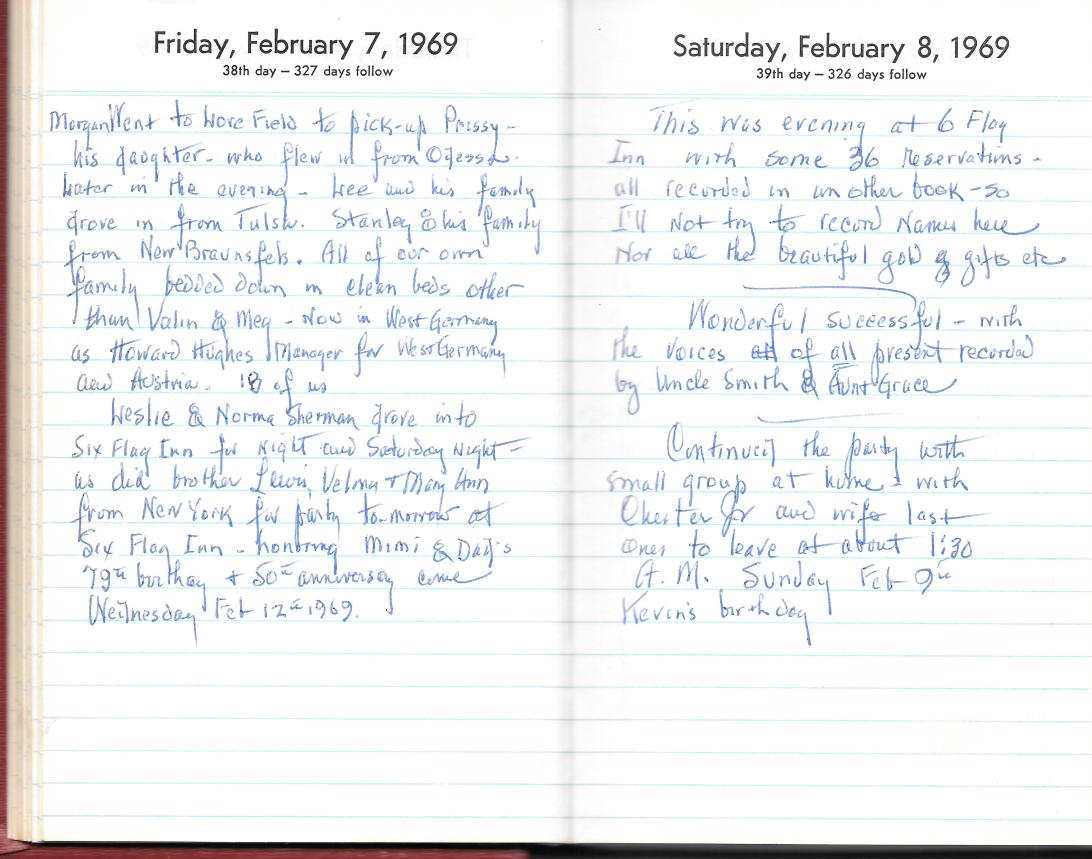 Friday, February 7, 1969
38th day – 327 days follow
Morgan Went to Love Field to pick-up Prissy -
his daughter - who flew in from Odessa.
Later in the evening - Lee and his family
drove in from Tulsa. Stanley & his family
from New Braunsfels. All of our own
family bedded down in clean beds other
than Valin & Meg - Now in West Germany
as Howard Hughes Manager for West Germany
and Austria. 18 of us
Leslie & Norma Sherman drove into
Six Flag Inn for Night and Saturday Night -
as did brother Lewis, Velma & Mary Ann
from New York for party to-morrow at
Six Flag Inn - honoring Mimi & Dad's
79th birthay + 50th anniversary come
Wednesday Feb 12th 1969.
Saturday, February 8, 1969
39th day – 326 days follow
This was evening at 6 Flag
Inn with some 36 reservations -
all recorded in an other book - so
I'll Not try to record Names here
Nor all the beautiful gold gifts etc
Wonderful successful - with
the voices of all present recorded
by Uncle Smith & Aunt Grace
Continued the party with
small group at home - with
Chester Jr and wife last
ones to leave at about 1:30
A.M. Sunday Feb 9th
Kevin's birthday